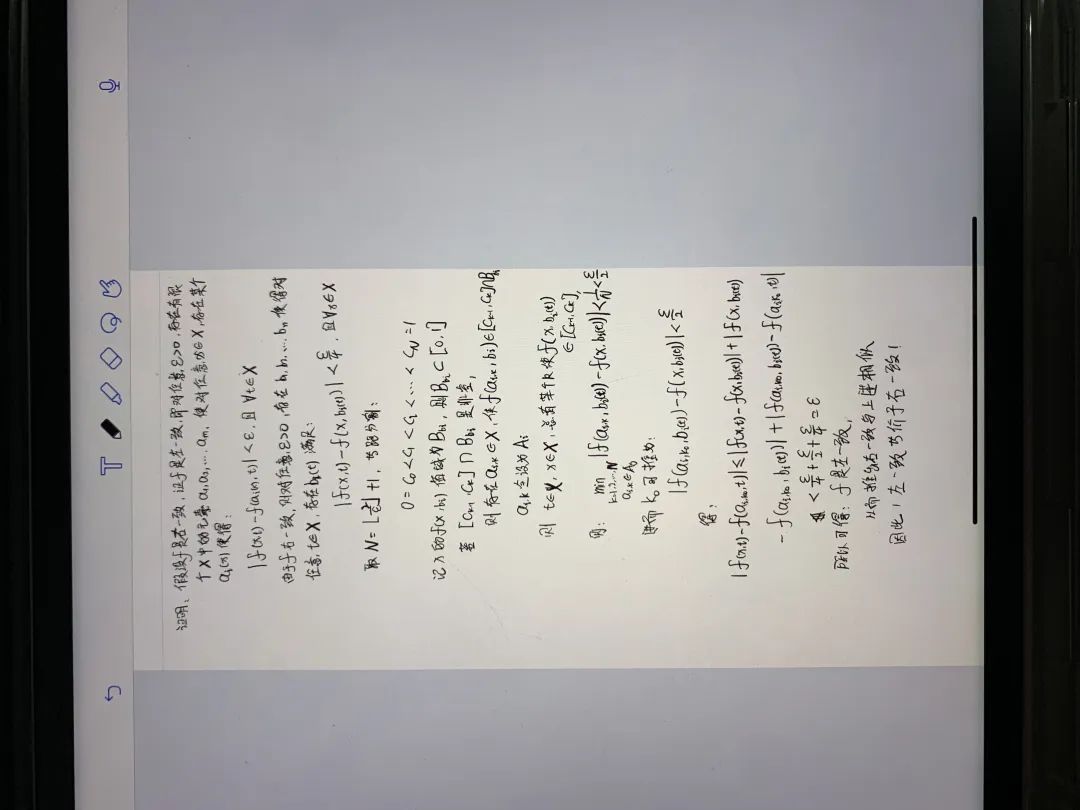 证明：假设f是右一致，证f是左一致，即对任意ε>0，存在有限
个X中的元素a₁,a₂,…,aₘ，使对任意x∈X，存在某个
aᵢ(x)使得：
|f(x,t)-f(aᵢ(x),t)|<ε，且∀t∈X
由于f右一致，则对任意ε>0，存在b₁,b₂,…,bₙ使得对
任意t∈X，存在bᵢ(t)满足：
|f(x,t)-f(x,bᵢ(t))|<ε/4，且∀x∈X
取N=+1，
0=C₀<C₁<…<C_N=1
记x的f(x,bᵢ)值域为B_bᵢ，则B_bᵢ⊂[0,1]
若[Cₖ₋₁,Cₖ]∩B_bᵢ是非空，
则存在aᵢ,ₖ∈X，使f(aᵢ,ₖ,bᵢ)∈[Cₖ₋₁,Cₖ]∩B_bᵢ
aᵢ,ₖ全设为Aᵢ
则t∈X，x∈X，总有某个k使f(x,bᵢ(t))
∈[Cₖ₋₁,Cₖ],
min |f(aᵢ,ₖ,bᵢ(t))-f(x,bᵢ(t))|<1/N<ε/2
k=1,2,…,N
进而k₀可推为：
|f(aᵢ,ₖ₀,bᵢ(t))-f(x,bᵢ(t))|<ε/2
得：
|f(x,t)-f(aᵢ,ₖ₀,t)|≤|f(x,t)-f(x,bᵢ(t))|+|f(x,bᵢ(t))
-f(aᵢ,ₖ₀,bᵢ(t))|+|f(aᵢ,ₖ₀,bᵢ(t))-f(aᵢ,ₖ₀,t)|
<ε/4+ε/2+ε/4=ε
所以可得：f是左一致，
从而推出右一致与上述相似
因此！左一致等价于右一致！